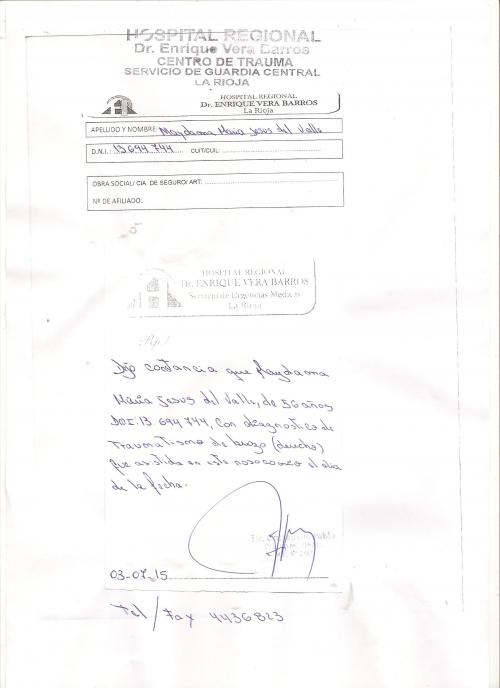 HOSPITAL REGIONAL
Dr. Enrique Vera Barros
CENTRO DE TRAUMA
SERVICIO DE GUARDIA CENTRAL
LA RIOJA
HOSPITAL REGIONAL
Dr. ENRIQUE VERA BARROS
La Rioja
APELLIDO Y NOMBRE: Maria Jesus del Valle
D.N.I.: 13 694 744 CUIT/CUIL:
OBRA SOCIAL/ CIA. DE SEGURO/ ART:
Nº DE AFILIADO:
HOSPITAL REGIONAL
Dr. ENRIQUE VERA BARROS
Servicio de Urgencias Medicas
La Rioja
Rp/
Dejo constancia que
Maria Jesus del Valle, de 56 años
DNI: 13. 694 744, con diagnostico de
Traumatismo de brazo (derecho)
Que asistida en este nosocomio el dia
de la fecha.
03-07-15
Tel / Fax 4436823